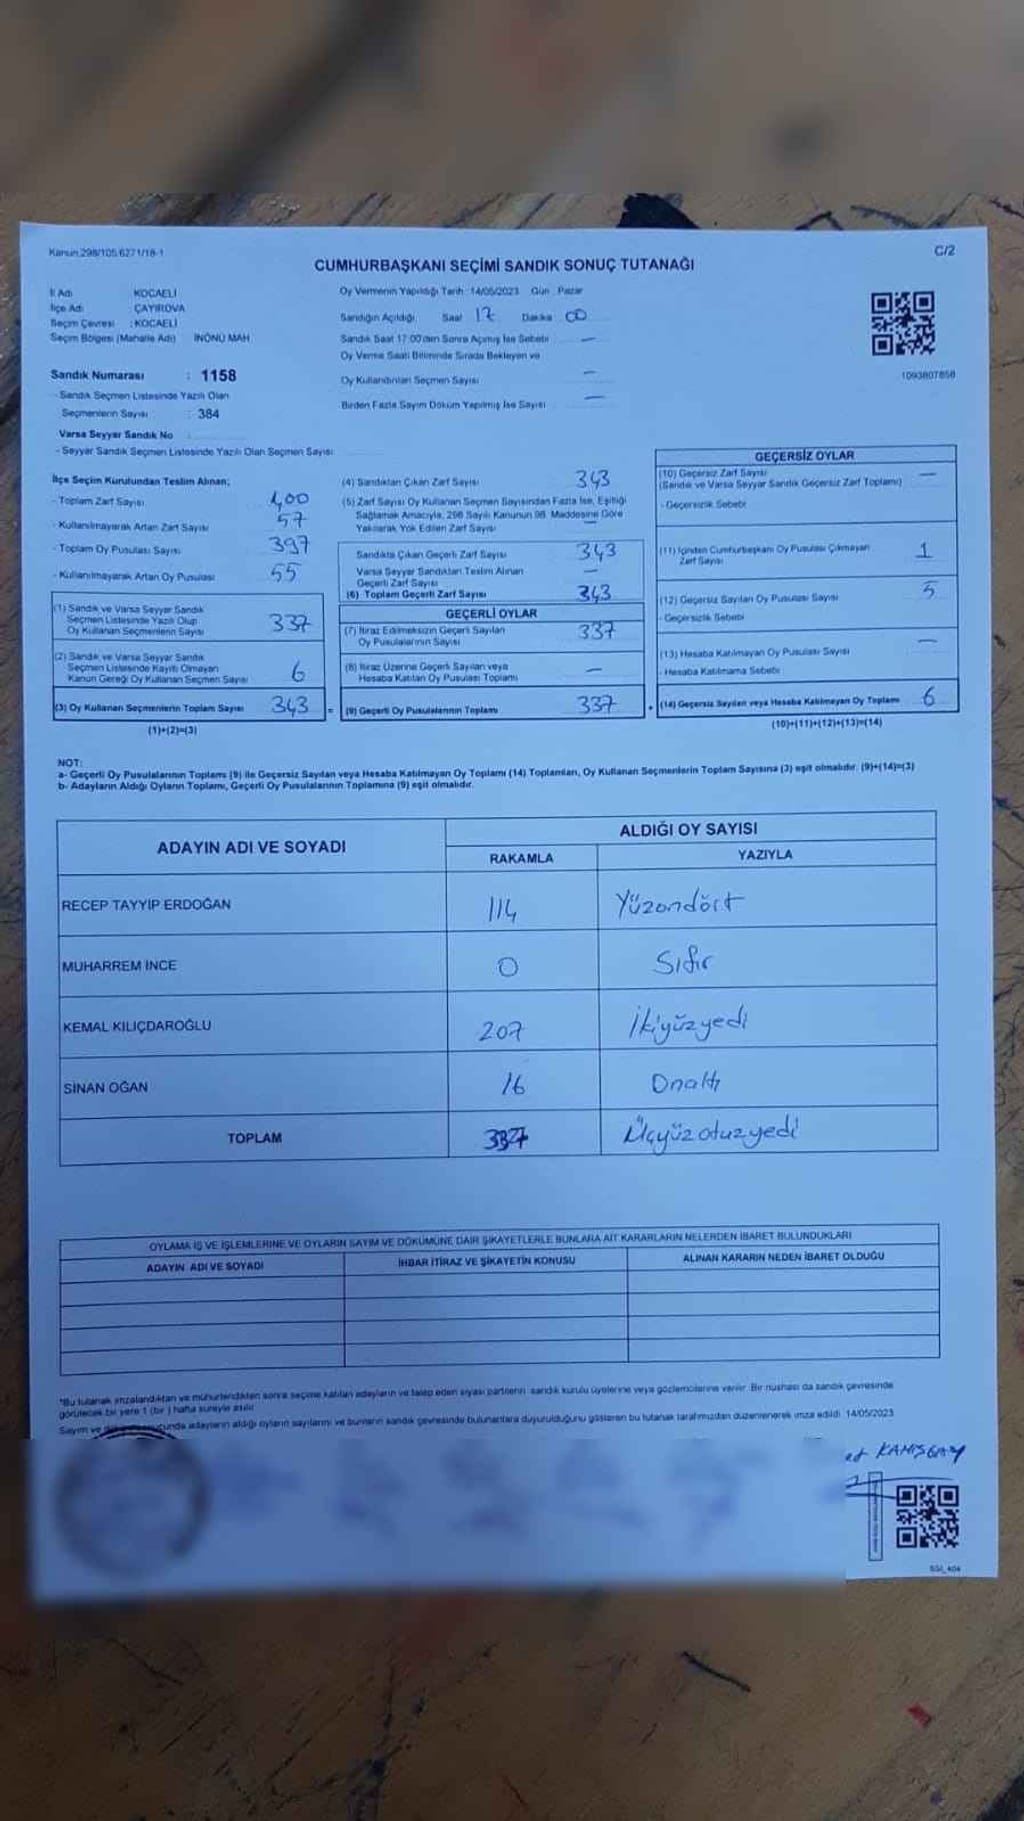 Kanun:298/105,6271/18-1
C/2
CUMHURBAŞKANI SEÇİMİ SANDIK SONUÇ TUTANAĞI
İl Adı KOCAELİ
İlçe Adı ÇAYIROVA
Seçim Çevresi : KOCAELİ
Seçim Bölgesi (Mahalle Adı) İNÖNÜ MAH
Oy Vermenin Yapıldığı Tarih :14/05/2023 Gün : Pazar
Sandığın Açıldığı Saat 17 Dakika 00
Sandık Saat 17:00'den Sonra Açılmış İse Sebebi —
Oy Verme Saati Bitiminde Sırada Bekleyen ve
Oy Kullandırılan Seçmen Sayısı —
Birden Fazla Sayım Döküm Yapılmış İse Sayısı —
1093807858
Sandık Numarası : 1158
- Sandık Seçmen Listesinde Yazılı Olan
Seçmenlerin Sayısı : 384
Varsa Seyyar Sandık No :
- Seyyar Sandık Seçmen Listesinde Yazılı Olan Seçmen Sayısı
İlçe Seçim Kurulundan Teslim Alınan;
- Toplam Zarf Sayısı 400
- Kullanılmayarak Artan Zarf Sayısı 57
- Toplam Oy Pusulası Sayısı 397
- Kullanılmayarak Artan Oy Pusulası 55
(1) Sandık ve Varsa Seyyar Sandık
Seçmen Listesinde Yazılı Olup
Oy Kullanan Seçmenlerin Sayısı 337
(2) Sandık ve Varsa Seyyar Sandık
Seçmen Listesinde Kayıtlı Olmayan
Kanun Gereği Oy Kullanan Seçmen Sayısı 6
(3) Oy Kullanan Seçmenlerin Toplam Sayısı 343 =
(1)+(2)=(3)
(4) Sandıktan Çıkan Zarf Sayısı 343
(5) Zarf Sayısı Oy Kullanan Seçmen Sayısından Fazla İse, Eşitliği
Sağlamak Amacıyla, 298 Sayılı Kanunun 98. Maddesine Göre
Yakılarak Yok Edilen Zarf Sayısı —
Sandıkta Çıkan Geçerli Zarf Sayısı 343
Varsa Seyyar Sandıktan Teslim Alınan
Geçerli Zarf Sayısı —
(6) Toplam Geçerli Zarf Sayısı 343
GEÇERLİ OYLAR
(7) İtiraz Edilmeksizin Geçerli Sayılan
Oy Pusulalarının Sayısı 337
(8) İtiraz Üzerine Geçerli Sayılan veya
Hesaba Katılan Oy Pusulası Toplamı —
(9) Geçerli Oy Pusulalarının Toplamı 337 +
GEÇERSİZ OYLAR
(10) Geçersiz Zarf Sayısı —
(Sandık ve Varsa Seyyar Sandık Geçersiz Zarf Toplamı)
- Geçersizlik Sebebi
(11) İçinden Cumhurbaşkanı Oy Pusulası Çıkmayan
Zarf Sayısı 1
(12) Geçersiz Sayılan Oy Pusulası Sayısı 5
- Geçersizlik Sebebi
(13) Hesaba Katılmayan Oy Pusulası Sayısı —
- Hesaba Katılmama Sebebi
(14) Geçersiz Sayılan veya Hesaba Katılmayan Oy Toplamı 6
(10)+(11)+(12)+(13)=(14)
NOT:
a- Geçerli Oy Pusulalarının Toplamı (9) ile Geçersiz Sayılan veya Hesaba Katılmayan Oy Toplamı (14) Toplamları, Oy Kullanan Seçmenlerin Toplam Sayısına (3) eşit olmalıdır. (9)+(14)=(3)
b- Adayların Aldığı Oyların Toplamı, Geçerli Oy Pusulalarının Toplamına (9) eşit olmalıdır.
ADAYIN ADI VE SOYADI ALDIĞI OY SAYISI
RAKAMLA YAZIYLA
RECEP TAYYİP ERDOĞAN 114 Yüzondört
MUHARREM İNCE 0 Sıfır
KEMAL KILIÇDAROĞLU 207 İkiyüzyedi
SİNAN OĞAN 16 Onaltı
TOPLAM 337 Üçyüzotuzyedi
OYLAMA İŞ VE İŞLEMLERİNE VE OYLARIN SAYIM VE DÖKÜMÜNE DAİR ŞİKAYETLERLE BUNLARA AİT KARARLARIN NELERDEN İBARET BULUNDUKLARI
ADAYIN ADI VE SOYADI İHBAR İTİRAZ VE ŞİKAYETİN KONUSU ALINAN KARARIN NEDEN İBARET OLDUĞU
*Bu tutanak imzalandıktan ve mühürlendikten sonra seçime katılan adayların ve talep eden siyasi partilerin sandık kurulu üyelerine veya gözlemcilerine verilir. Bir nüshası da sandık çevresinde
görülecek bir yere 1 (bir) hafta süreyle asılır.
Sayım ve adayların aldığı oyların sayılarını ve bunların sandık çevresinde bulunanlara duyurulduğunu gösteren bu tutanak tarafımızdan düzenlenerek imza edildi. 14/05/2023